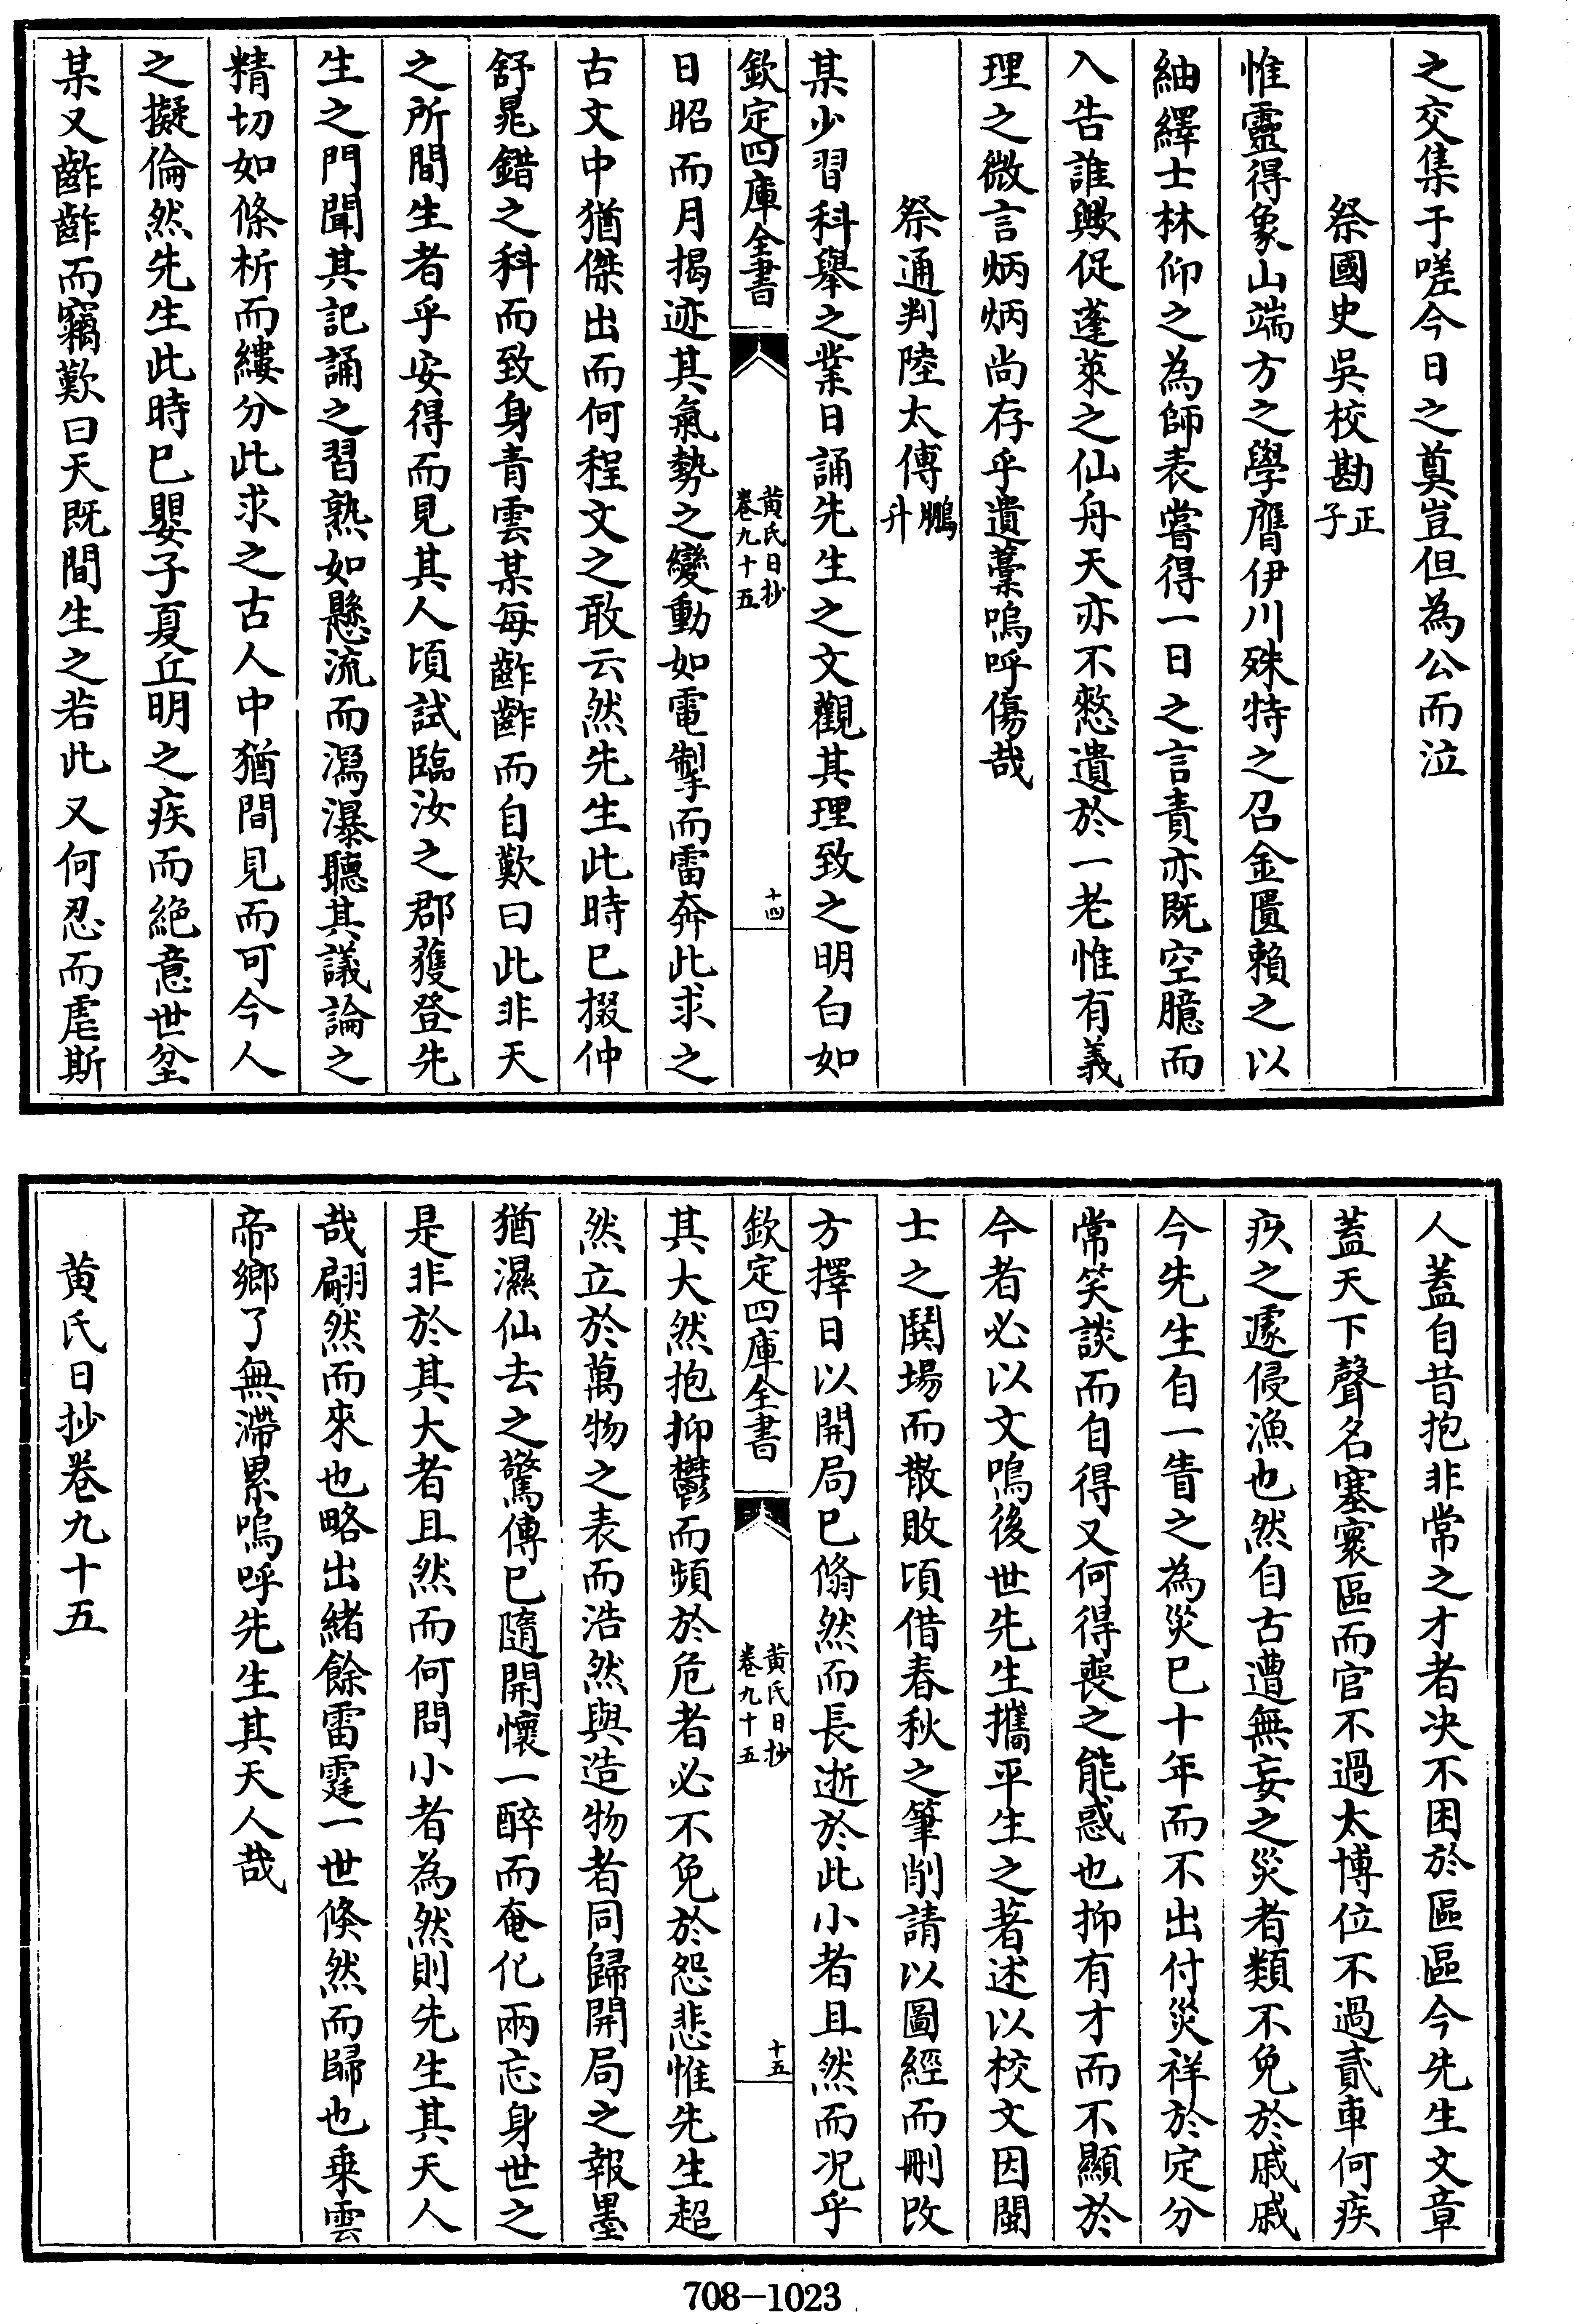 之交集于嗟今日之奠豈但為公而泣
祭國史吳校勘子正
惟靈得象山端方之學膺伊川殊特之召金匱賴之以
紬繹士林仰之為師表嘗得一日之言責亦既空臆而
入告誰歟促蓬萊之仙舟天亦不憗遺於一老惟有義
理之微言炳炳尚存乎遺藁嗚呼傷哉
祭通判陸太傅鵬升
某少習科舉之業日誦先生之文觀其理致之明白如
欽定四庫全書
黃氏日抄
卷九十五
十四
日昭而月揭迹其氣勢之變動如電掣而雷奔此求之
古文中猶傑出而何程文之敢云然先生此時已掇仲
舒晁錯之科而致身青雲某每齚齚而自歎曰此非天
之所間生者乎安得而見其人頃試臨汝之郡獲登先
生之門聞其記誦之習熟如懸流而瀉瀑聽其議論之
精切如條析而縷分此求之古人中猶間見而可今人
之擬倫然先生此時已嬰子夏丘明之疾而絕意世坌
某又齚齚而竊歎曰天既間生之若此又何忍而虐斯
人蓋自昔抱非常之才者决不困於區區今先生文章
蓋天下聲名塞寰區而官不過太博位不過貳車何疾
疢之遽侵漁也然自古遭無妄之災者類不免於戚戚
今先生自一眚之為災已十年而不出付災祥於定分
常笑談而自得又何得喪之能惑也抑有才而不顯於
今者必以文鳴後世先生攜平生之著述以校文因閩
士之鬨場而撒敗頃借春秋之筆削請以圖經而刪改
方擇日以開局已翛然而長逝於此小者且然而况乎
欽定四庫全書
黃氏日抄
卷九十五
十五
其大然抱抑鬱而頻於危者必不免於怨悲惟先生超
然立於萬物之表而浩然與造物者同歸開局之報墨
猶濕仙去之驚傳已隨開懷一醉而奄化兩忘身世之
是非於其大者且然而何問小者為然則先生其天人
哉翩然而來也略出緒餘雷霆一世倏然而歸也乗雲
帝鄉了無滯累嗚呼先生其天人哉
黃氏日抄卷九十五
708-1023